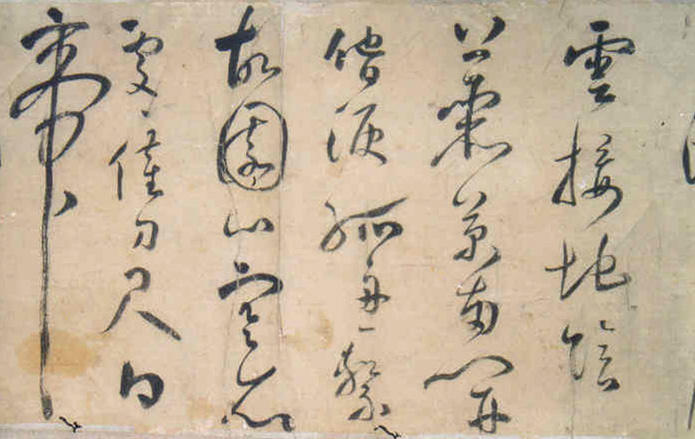 雲接地陰
叢菊兩開
他日淚孤舟一繫
故園心寒衣
處〻催刀尺白
帝